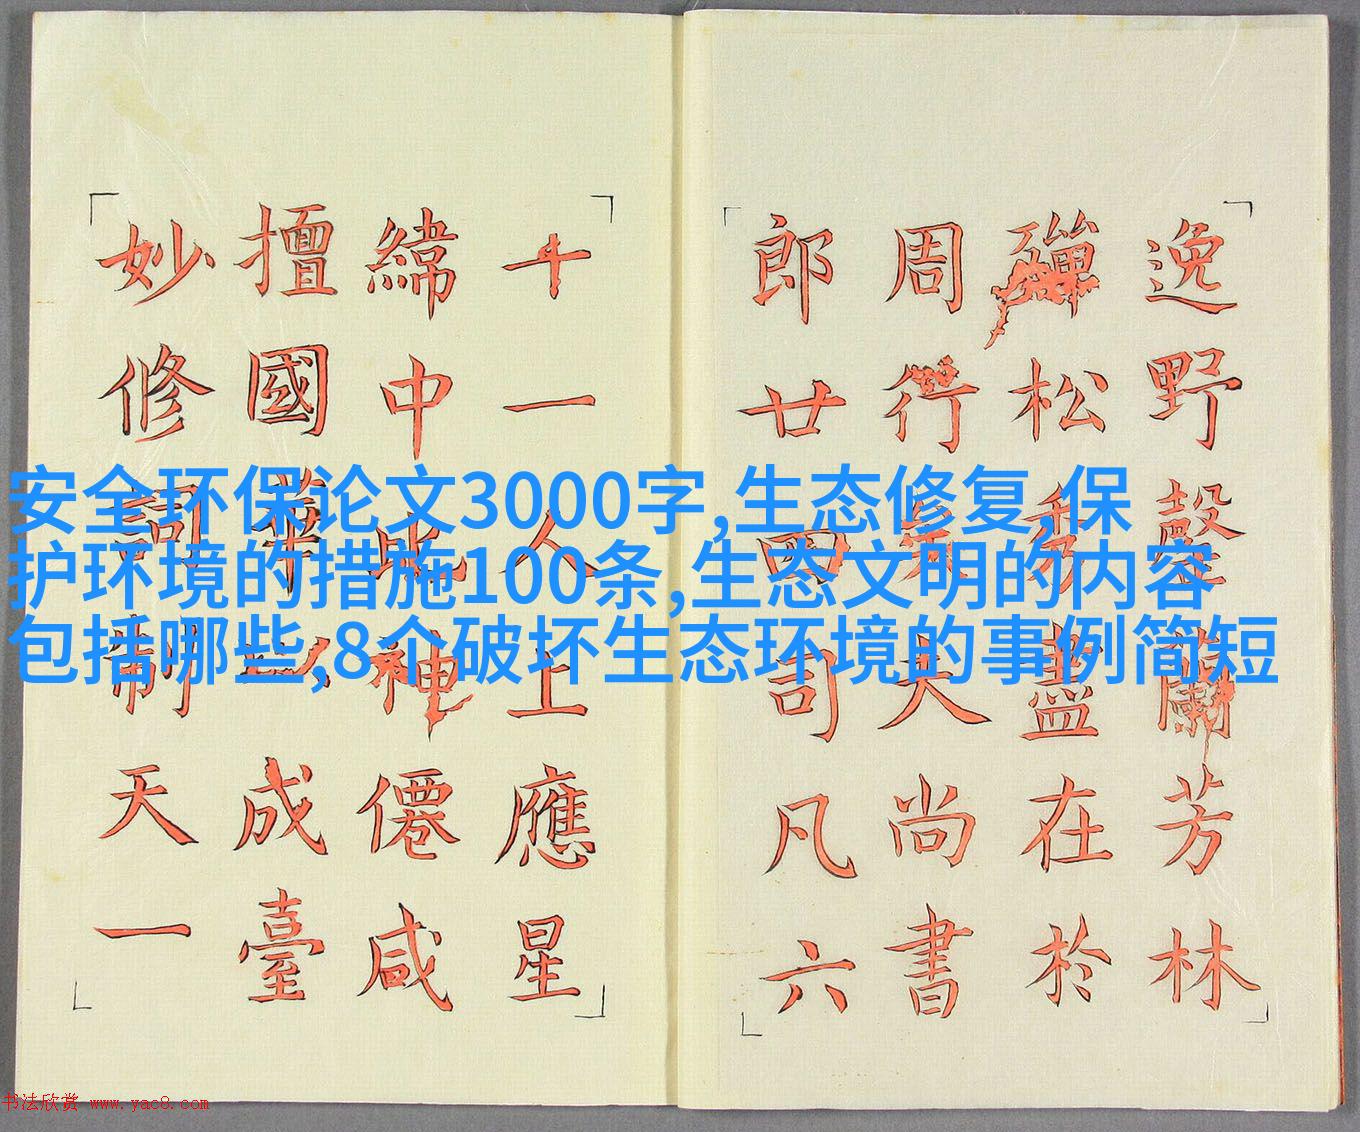 安全环保论文3000字,生态修复,保
护环境的措施100条,生态文明的内容
包括哪些,8个破坏生态环境的事例简短
逸野馨蘭芳林
殫松秀盡在於
周行大尚書
郎廿四司凡六
十一人上應星
緯中此神僊咸
擅國華成臺
妙修詞制天一
书法欣赏 www.yac8.com